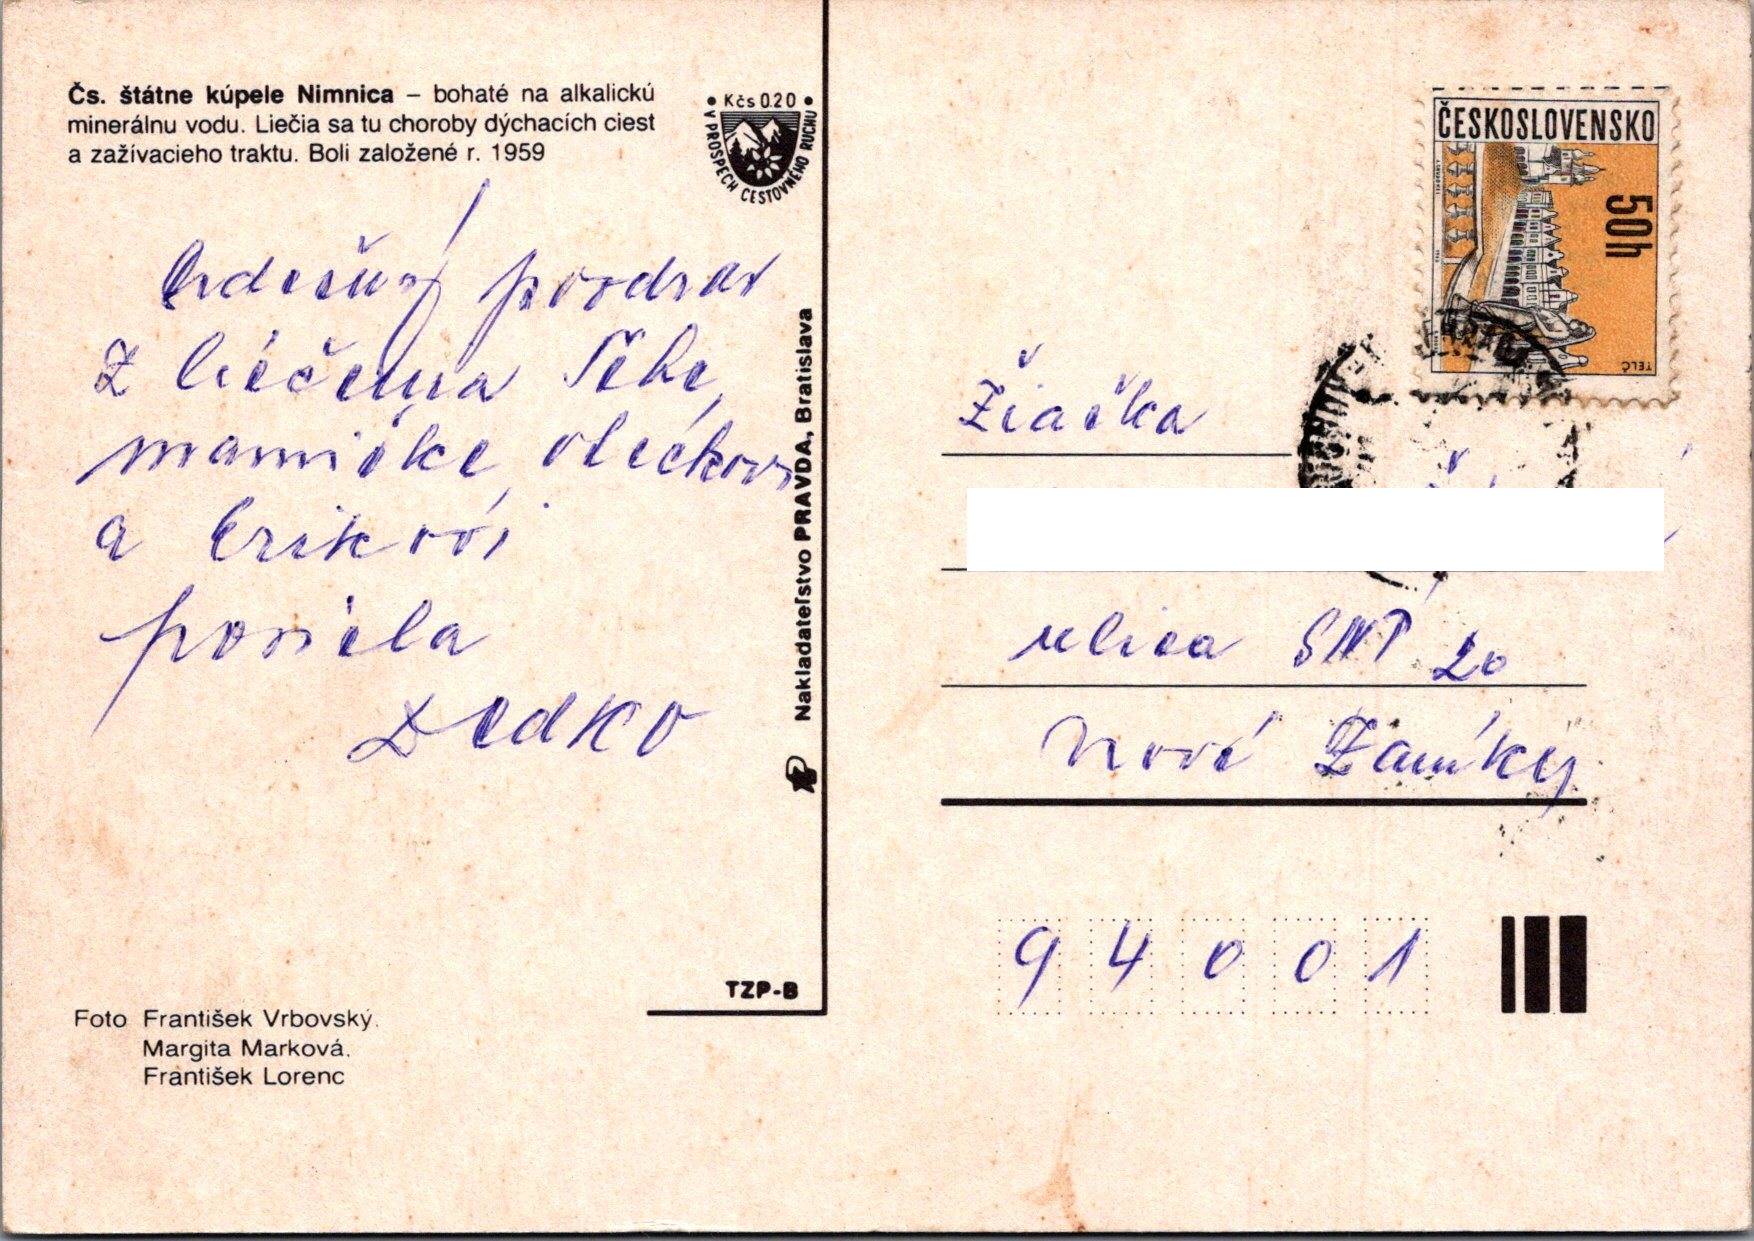 Čs. štátne kúpele Nimnica – bohaté na alkalickú
minerálnu vodu. Liečia sa tu choroby dýchacích ciest
a zažívacieho traktu. Boli založené r. 1959
• Kčs 0.20 •
V PROSPECH CESTOVNÉHO RUCHU
Srdečný pozdrav
z liéčenia Tebe,
mamičke, oteckovi
a Erikovi
posiela
Dedko
Nakladateľstvo PRAVDA, Bratislava
TZP-B
Foto František Vrbovský.
Margita Marková.
František Lorenc
ČESKOSLOVENSKO
50h
TELČ
Žiačka
ulica SNP 20
Nové Zámky
940 01